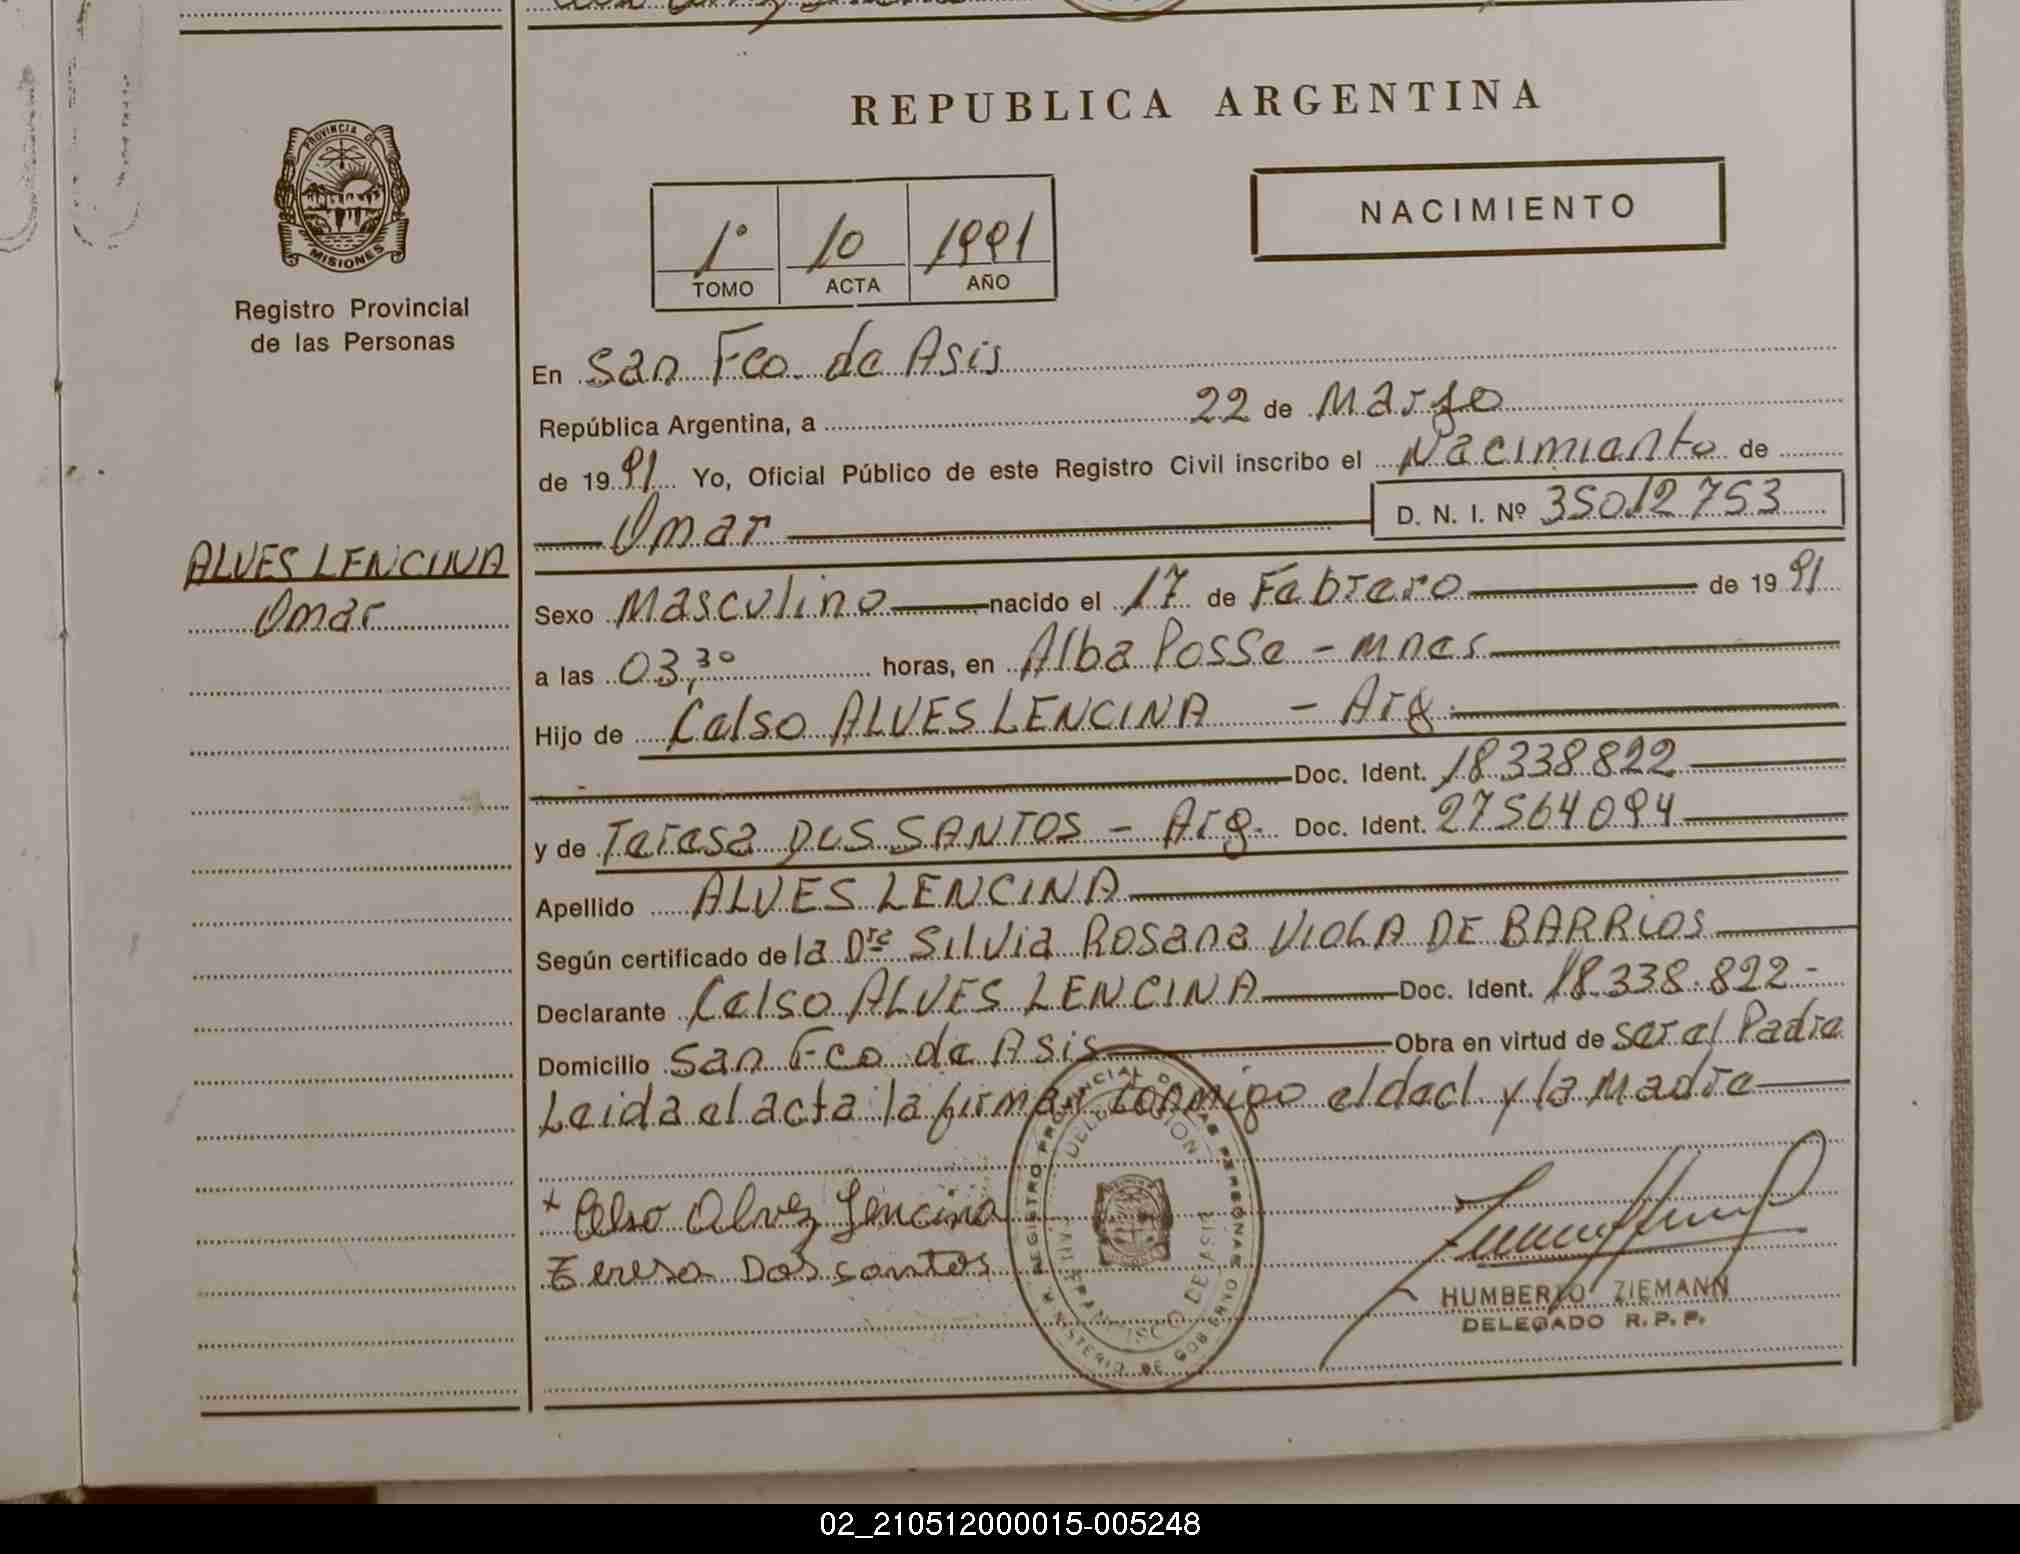 REPUBLICA ARGENTINA
PROVINCIA DE
MISIONES
Registro Provincial
de las Personas
1º 10 1991
TOMO ACTA AÑO
NACIMIENTO
En San Fco. de Asis
República Argentina, a 22 de Marzo
de 1991 Yo, Oficial Público de este Registro Civil inscribo el Nacimiento de
Omar D. N. I. Nº 35012753
ALVES LENCINA
Omar
Sexo Masculino nacido el 17 de Febrero de 1991
a las 03,30 horas, en Alba Posse - Mnes
Hijo de Celso ALVES LENCINA - Arg.
Doc. Ident. 18.338.822
y de Teresa DOS SANTOS - Arg. Doc. Ident. 27564094
Apellido ALVES LENCINA
Según certificado de la Dra Silvia Rosana VIOLA DE BARRIOS
Declarante Celso ALVES LENCINA Doc. Ident. 18.338.822-
Domicilio San Fco de Asis Obra en virtud de ser el Padre
Leida el acta la firman conmigo el decl. y la Madre
REGISTRO PROVINCIAL DE LAS PERSONAS
DELEGACION
FRANCISCO DE ASIS
MINISTERIO DE GOBIERNO
+ Celso Alvez Lencina
Teresa Dos santos
HUMBERTO ZIEMANN
DELEGADO R.P.P.
02_210512000015-005248